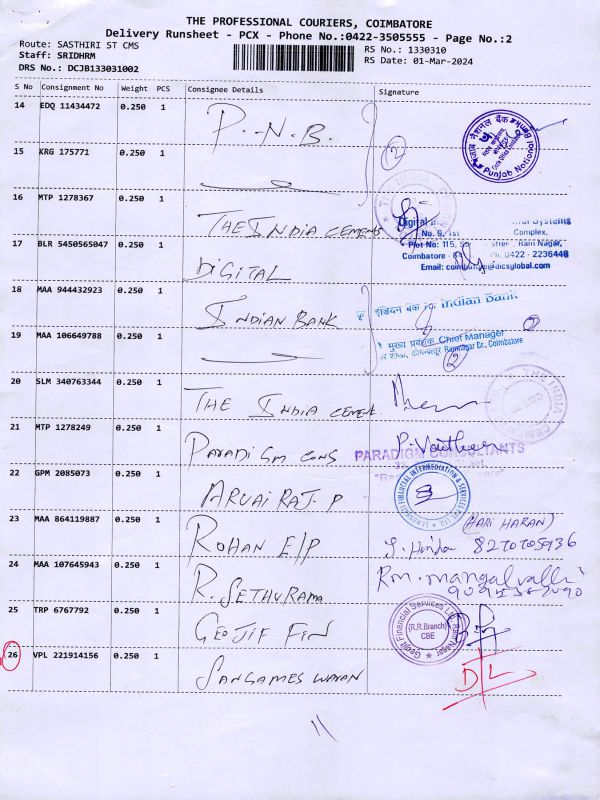 THE PROFESSIONAL COURIERS, COIMBATORE
Delivery Runsheet - PCX - Phone No.:0422-3505555 - Page No.:2
Route: SASTHIRI ST CMS
RS No.: 1330310
Staff: SRIDHRM
RS Date: 01-Mar-2024
DRS No.: DCJB133031002
S No Consignment No Weight PCS Consignee Details Signature
14 EDQ 11434472 0.250 1 P.N.B.
पंजाब नैशनल बैंक
Punjab National Bank
2
15 KRG 175771 0.250 1
16 MTP 1278367 0.250 1 THE INDIA CEMENTS
Digital Systems
No. 9, 1st Complex,
Plot No: 115, Ram Nagar,
17 BLR 5450565047 0.250 1 DIGITAL
Coimbatore - Ph: 0422 - 2236448
Email: coimbatore@dicsglobal.com
18 MAA 944432923 0.250 1 INDIAN BANK
इंडियन बैंक Indian Bank
19 MAA 106649788 0.250 1
मुख्य प्रबंधक Chief Manager
Ramnagar Br., Coimbatore
2
20 SLM 340763344 0.250 1 THE INDIA CEMENT.
21 MTP 1278249 0.250 1 PARADIGM CONS
PARADIGM CONSULTANTS
22 GPM 2085073 0.250 1 ARVAI RAJ. P
FINANCIAL INTERMEDIATION & SERVICES
23 MAA 864119887 0.250 1 ROHAN E/P
(HARI HARAN)
24 MAA 107645943 0.250 1 R. SETHURAMA
Rm. mangalvalli
25 TRP 6767792 0.250 1 GEOJIF FIN
Geojit Financial Services Ltd
(R.R.Branch)
CBE
26 VPL 221914156 0.250 1 SANGAMESWARAN
DL